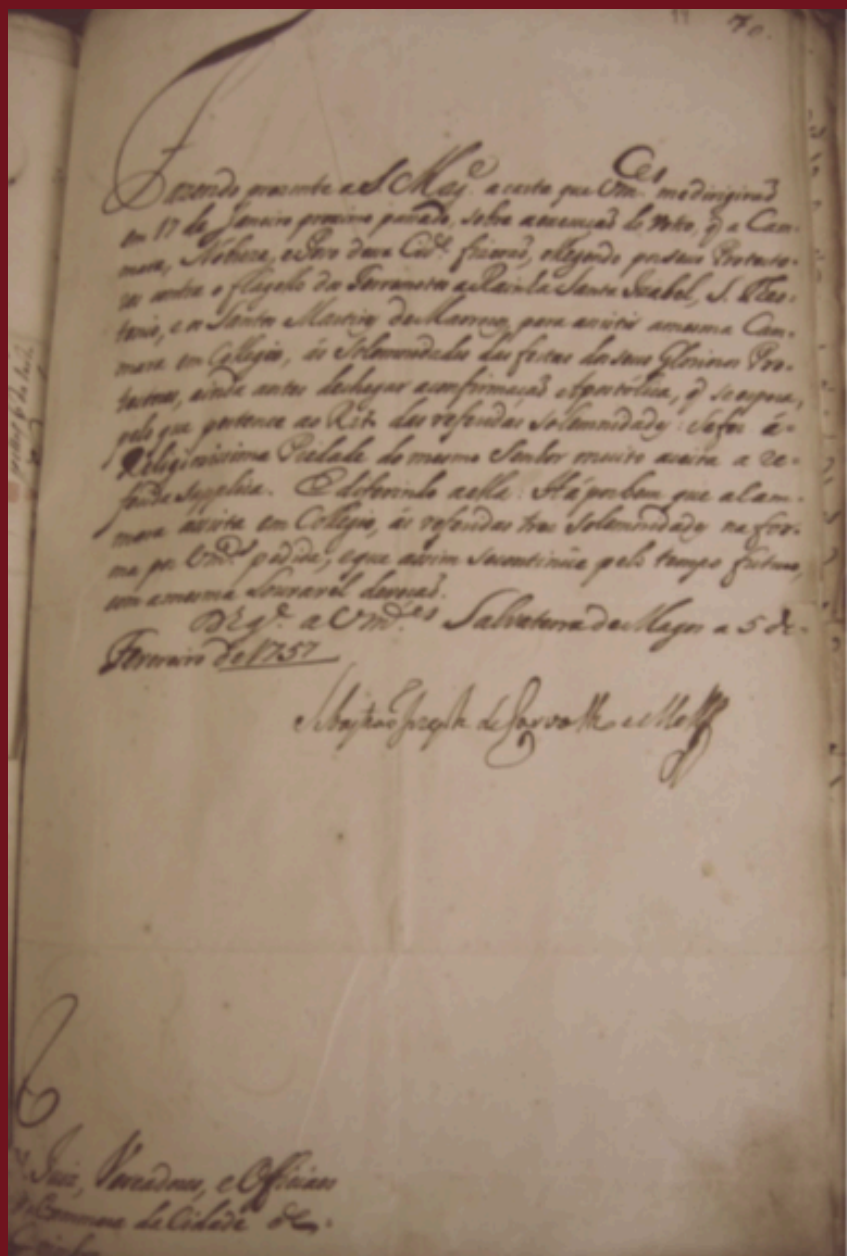 70.
Fazendo prezente a S. Mag.e a carta que Vm.ces me dirigiraõ
em 17 de Janeiro proximo passado, sobre a execuçaõ do Voto, q̃ a Cam-
mara, Nobreza, e Povo dessa Cid.e fizeraõ, ellegendo por seus Protecto-
res contra o flagello dos Terremotos a Rainha Santa Izabel, S. Theo-
tonio, e os Santos Martires de Marrocos, para assistir a mesma Cam-
mara em Collegio, ás solemnidades das festas dos seus Gloriosos Pro-
tectores, ainda antes de chegar a confirmaçaõ Apostolica, q̃ se espera,
pelo que pertence ao Rito das referidas solemnidades: Se fez á
Religiosissima Piedade do mesmo Senhor muito aceita a re-
ferida supplica. E deferindo a ella: Há por bem que a Cam-
mara assista em Collegio, ás referidas tres solemnidades na for-
ma por Vm.ces pedida, e que assim se continûe pelo tempo futuro,
com a mesma louvavel devoçaõ.
D.s g.e a Vm.ces Salvaterra de Magos a 5 de
Fevereiro de 1757
Sebastiaõ Joseph de Carvalho e Mello
Juiz, Vereadores, e Officiaes
da Cammara da Cidade de
Coimbra